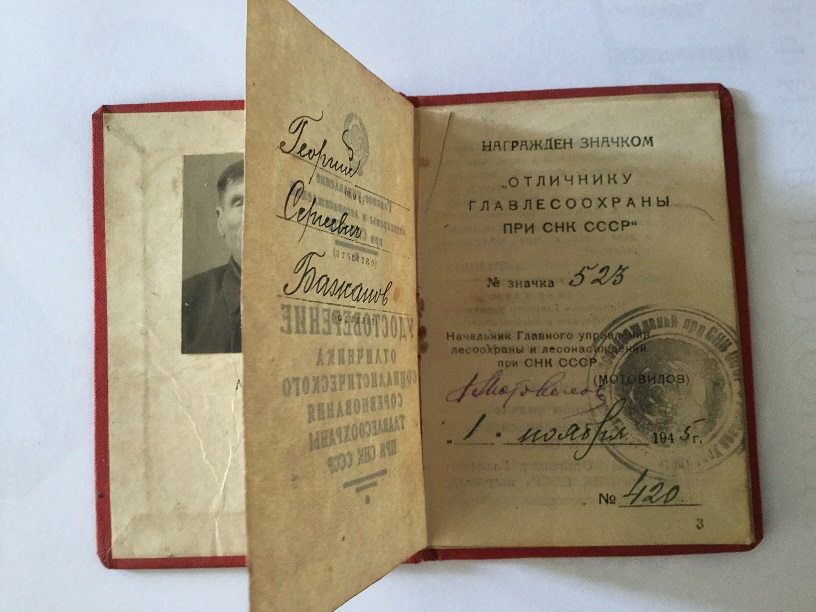 Георгий
(имя)
Сергеевич
(отчество)
Бажанов
(фамилия)
УДОСТОВЕРЕНИЕ
ОТЛИЧНИКА
СОЦИАЛИСТИЧЕСКОГО
СОРЕВНОВАНИЯ
ГЛАВЛЕСООХРАНЫ
ПРИ СНК СССР
НАГРАЖДЕН ЗНАЧКОМ
„ОТЛИЧНИКУ
ГЛАВЛЕСООХРАНЫ
ПРИ СНК СССР“
№ значка 523
Начальник Главного управления
лесоохраны и лесонасаждений
при СНК СССР
(МОТОВИЛОВ)
„1." ноября 1945 г.
№ 420
3